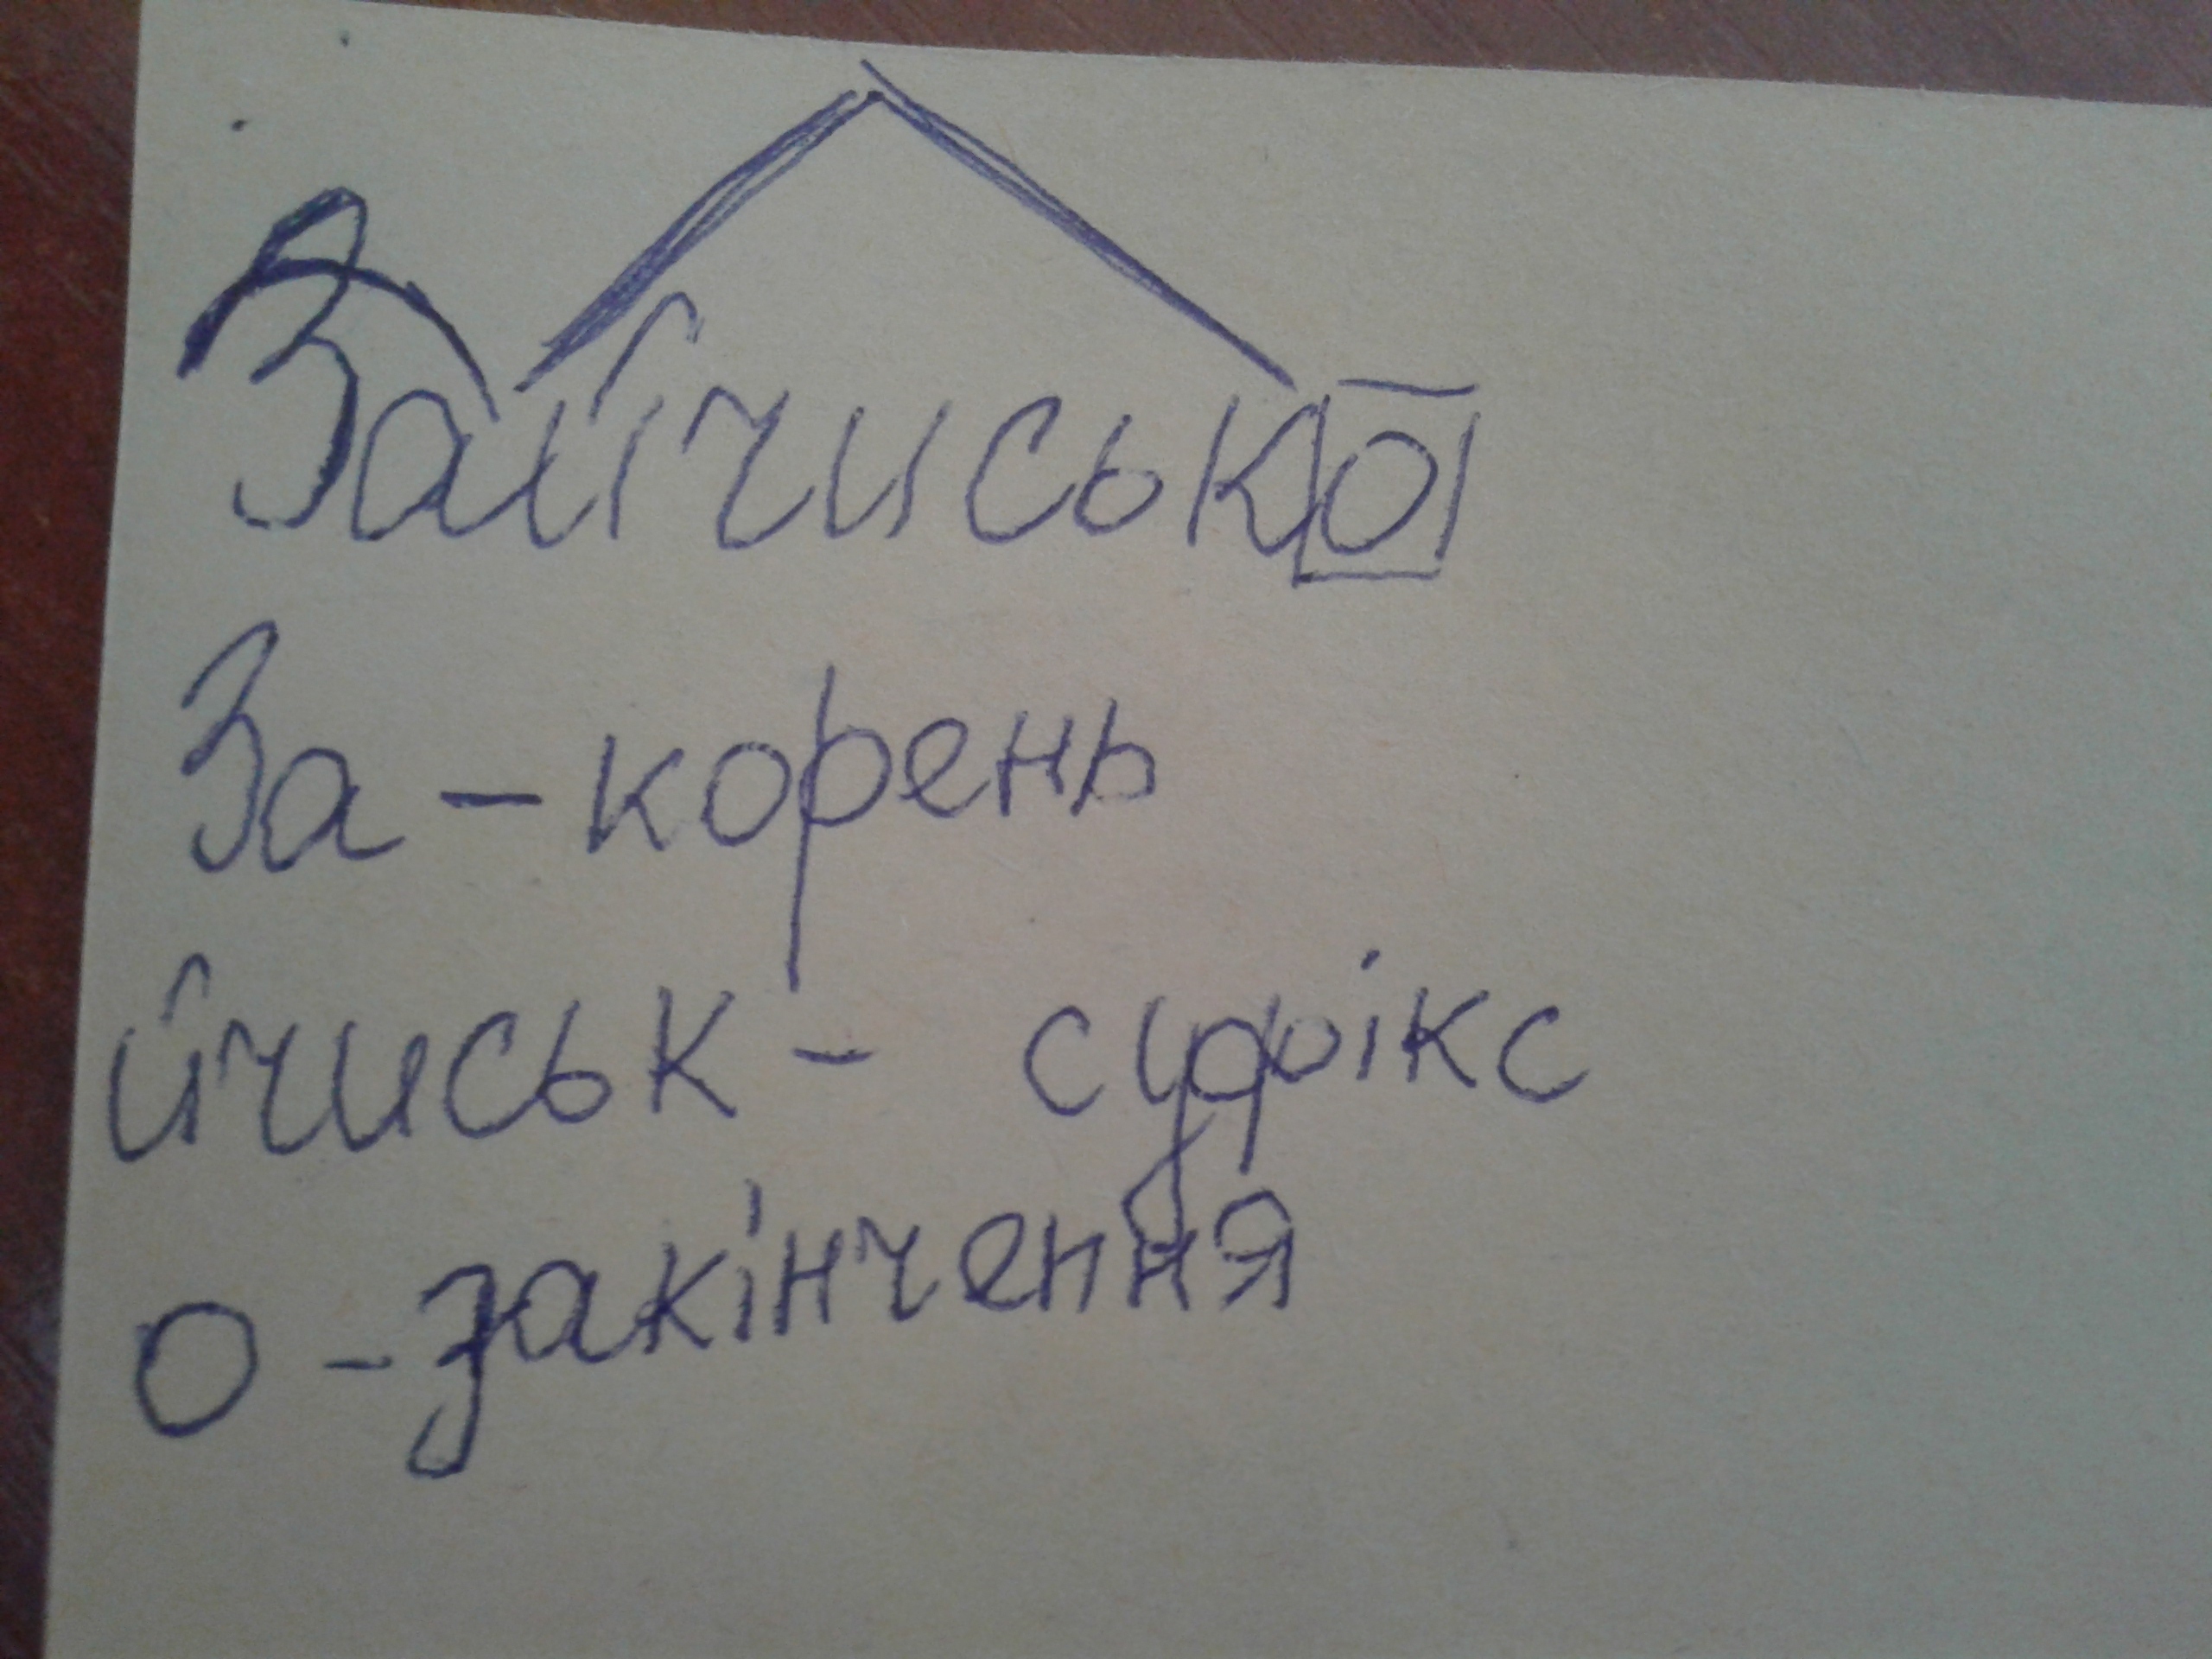 Зайчисько
За - корень
йчиськ - суфікс
о - закінчення